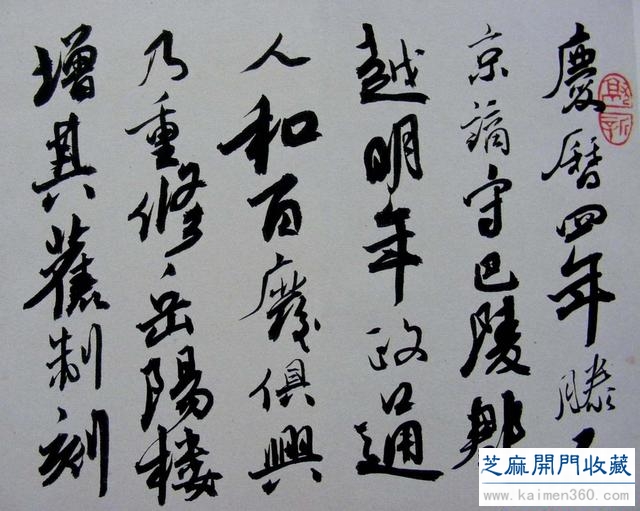 慶曆四年滕子
京謫守巴陵郡
越明年政通
人和百廢俱興
乃重修岳陽樓
增其舊制刻
芝麻開門收藏
www.kaimen360.com